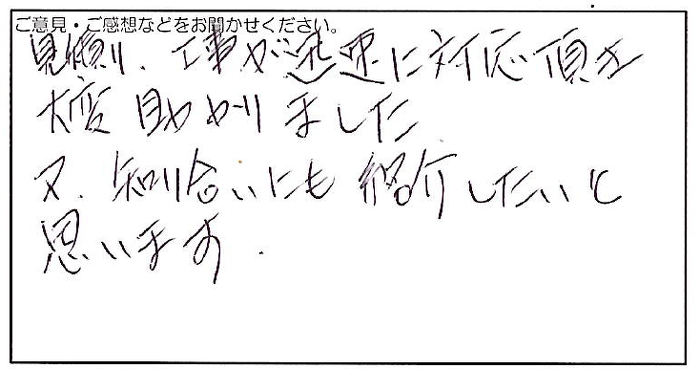 ご意見・ご感想などをお聞かせください。
見積り、工事が迅速に対応頂き
大変助かりました
又、知り合いにも紹介したいと
思います.